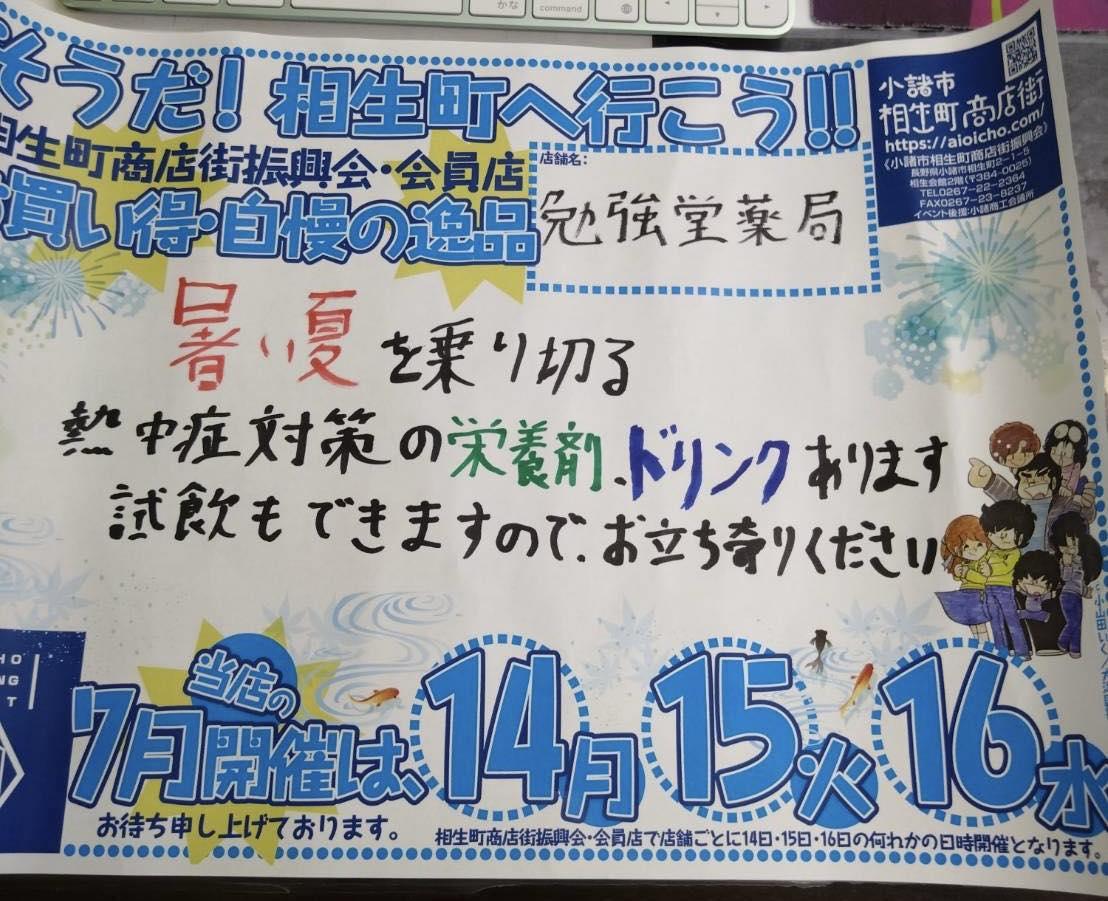 かな
command
そうだ!相生町へ行こう!!
相生町商店街振興会・会員店
お買い得・自慢の逸品
店舗名:
勉強堂薬局
小諸市
相生町商店街
https://aioicho.com/
《小諸市相生町商店街振興会》
長野県小諸市相生町2-1-5
相生会館2階(〒384-0025)
TEL0267-22-2364
FAX0267-23-8237
イベント後援:小諸商工会議所
暑い夏を乗り切る
熱中症対策の栄養剤、ドリンクあります
試飲もできますので、お立ち寄りください
当店の
7月開催は、14月 15火 16水
お待ち申し上げております。
相生町商店街振興会・会員店で店舗ごとに14日・15日・16日の何れかの日時開催となります。